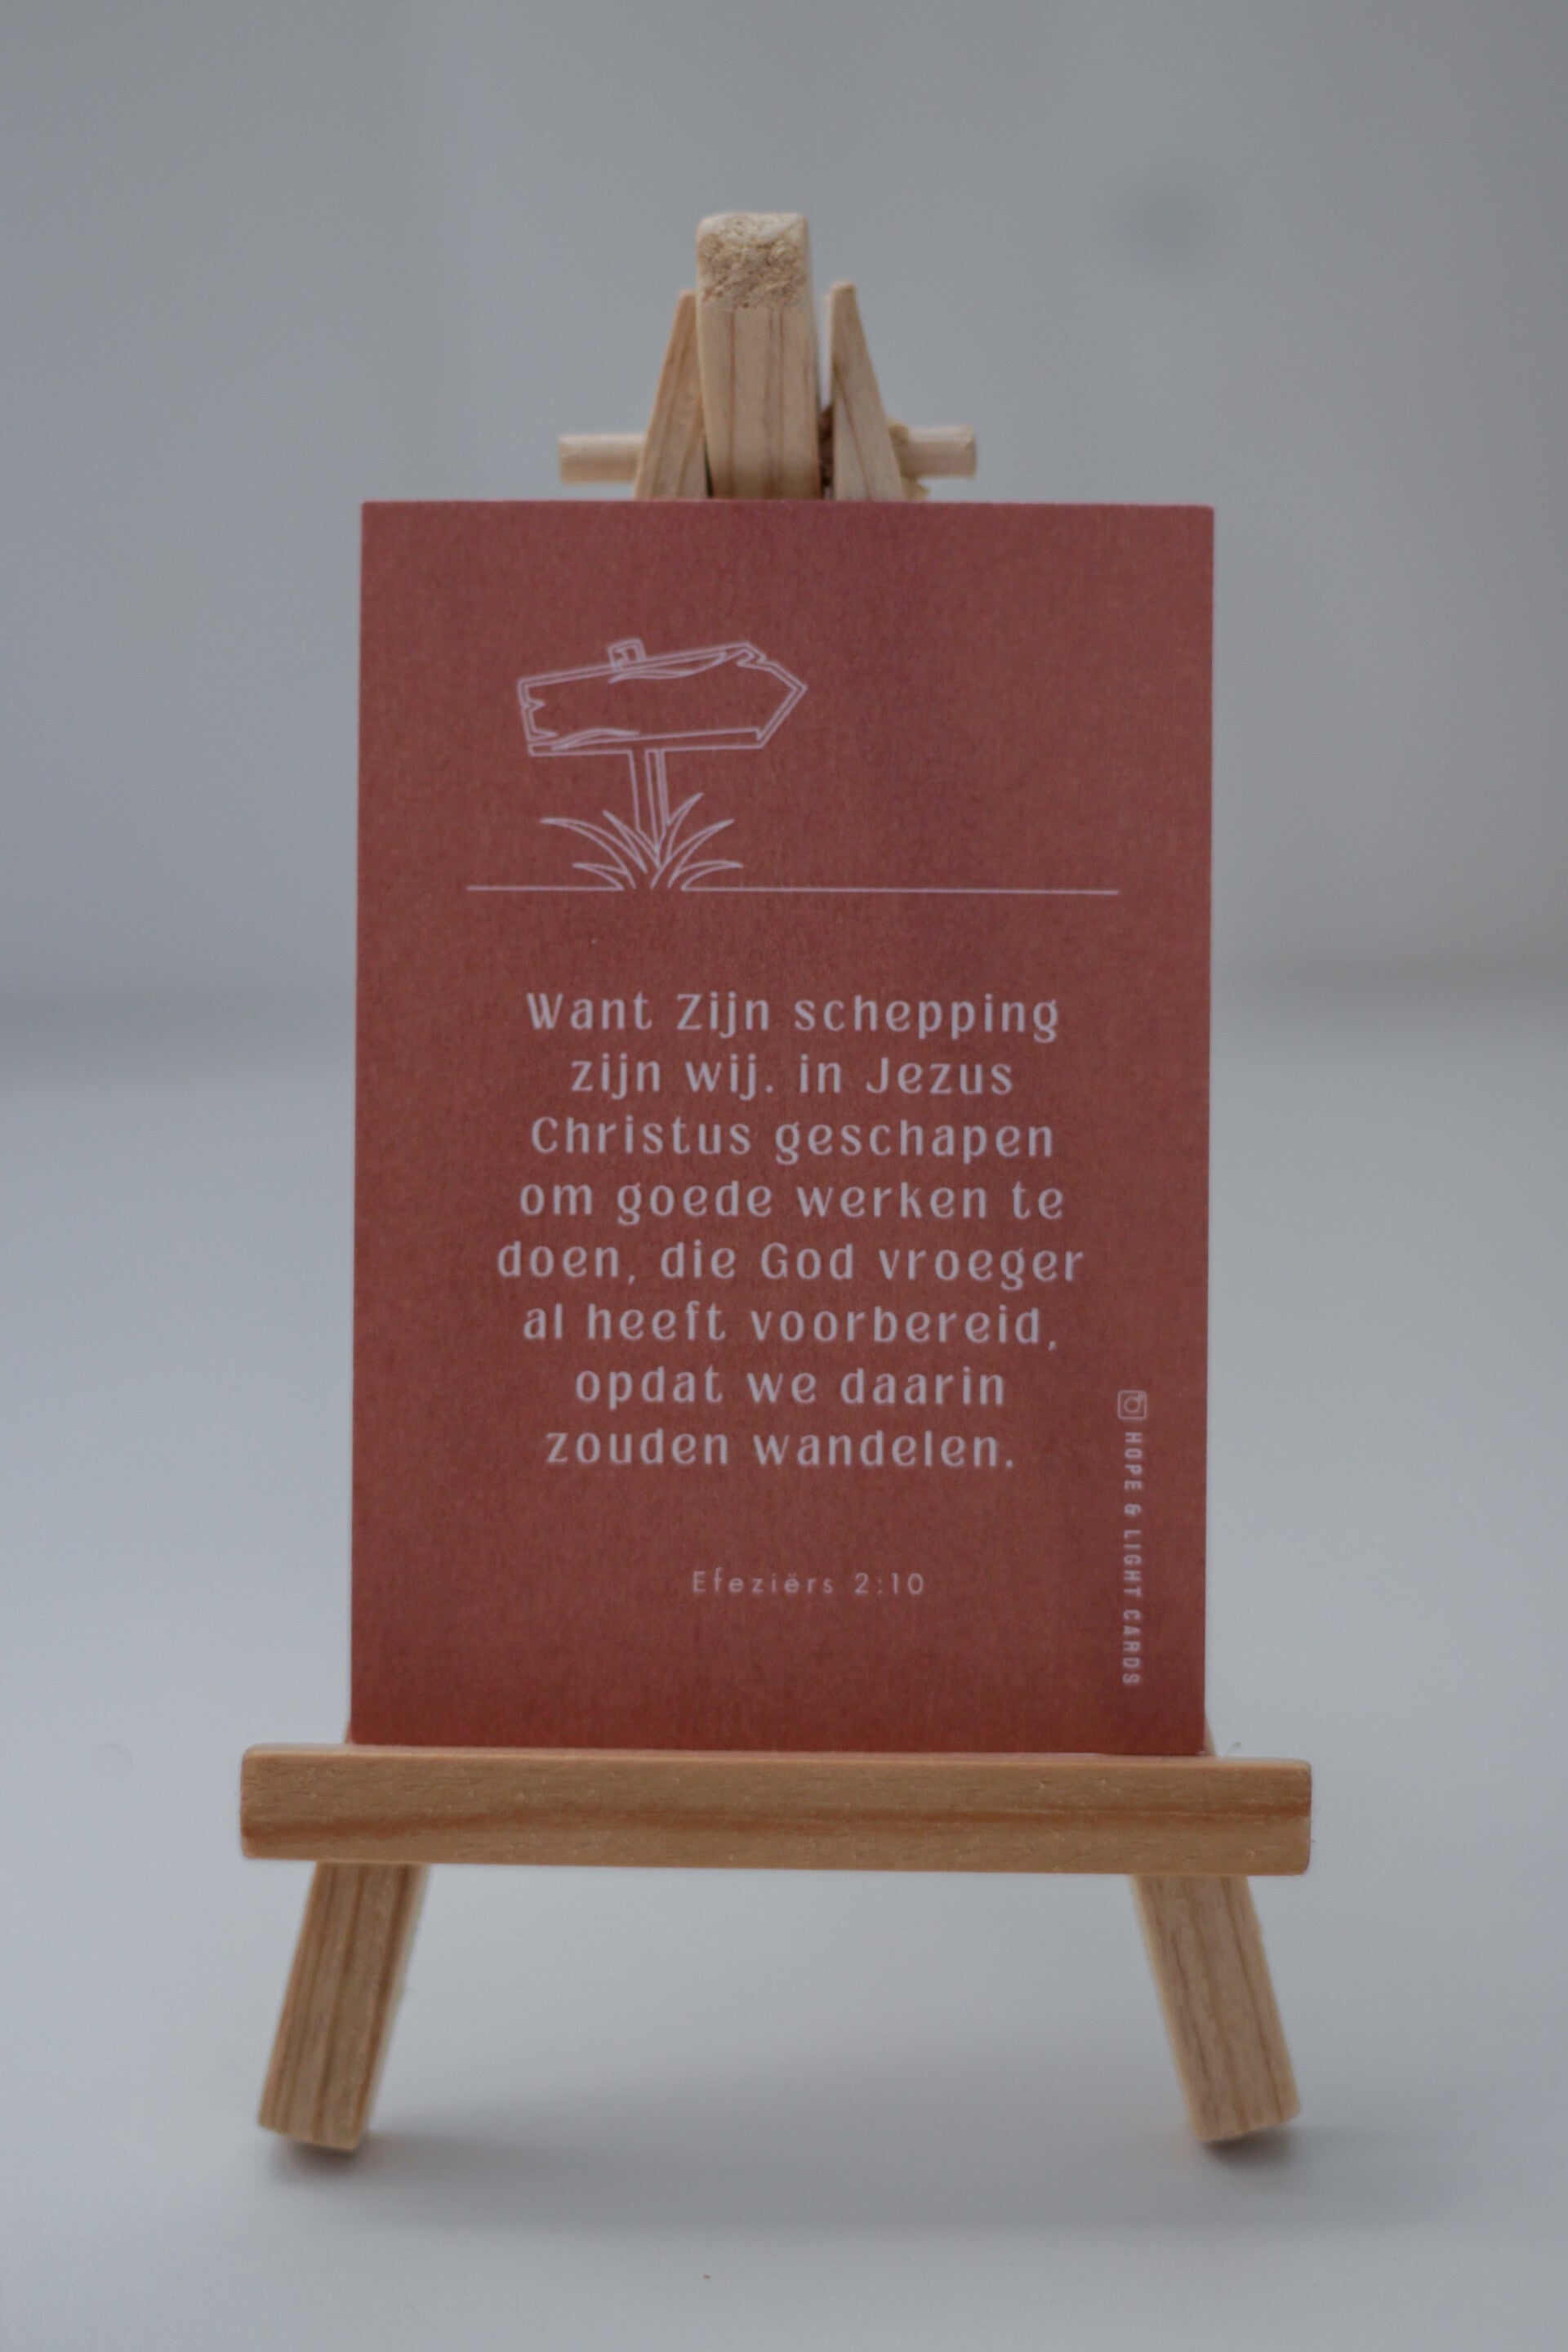 Want Zijn schepping
zijn wij. in Jezus
Christus geschapen
om goede werken te
doen, die God vroeger
al heeft voorbereid,
opdat we daarin
zouden wandelen.
Efeziërs 2:10
HOPE & LIGHT CARDS